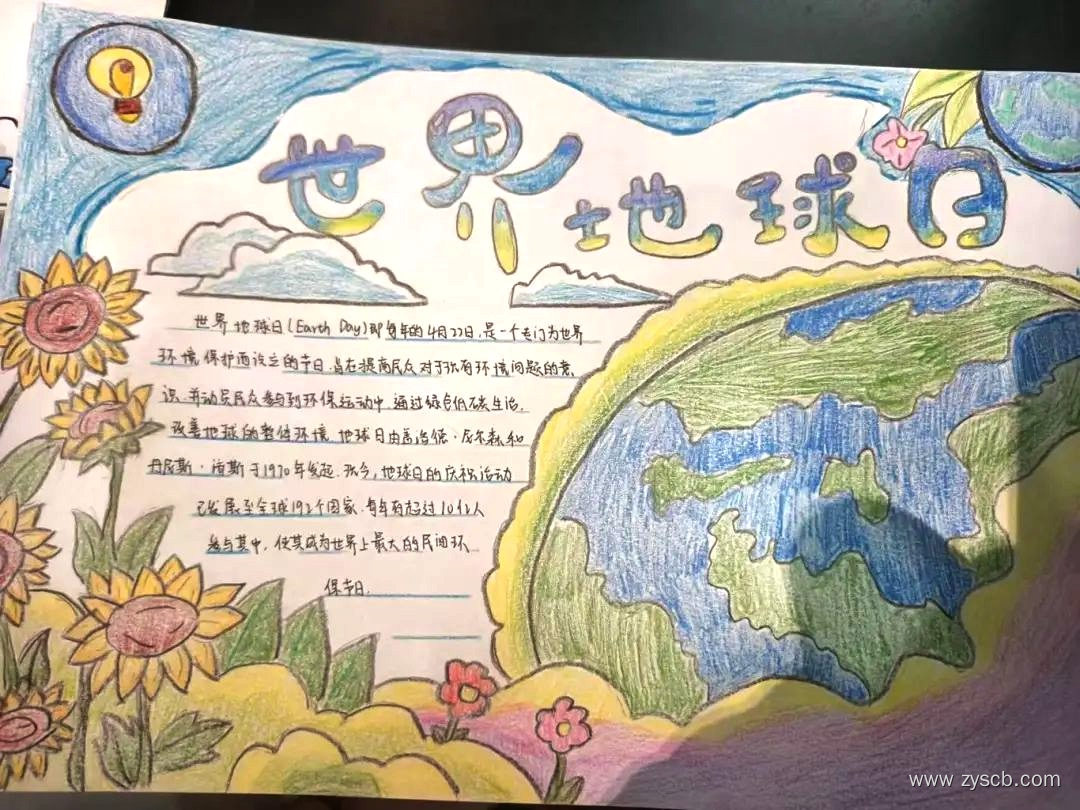 世界地球日
世界地球日(Earth Day)即每年的4月22日,是一个专门为世界
环境保护而设立的节日,旨在提高民众对于现有环境问题的意
识,并动员民众参与到环保运动中,通过绿色低碳生活,
改善地球的整体环境,地球日由盖洛德·尼尔森和
丹尼斯·海斯于1970年发起.现今,地球日的庆祝活动
已发展至全球192个国家,每年有超过10亿人
参与其中,使其成为世界上最大的民间环
保节日.
www.zyscb.com